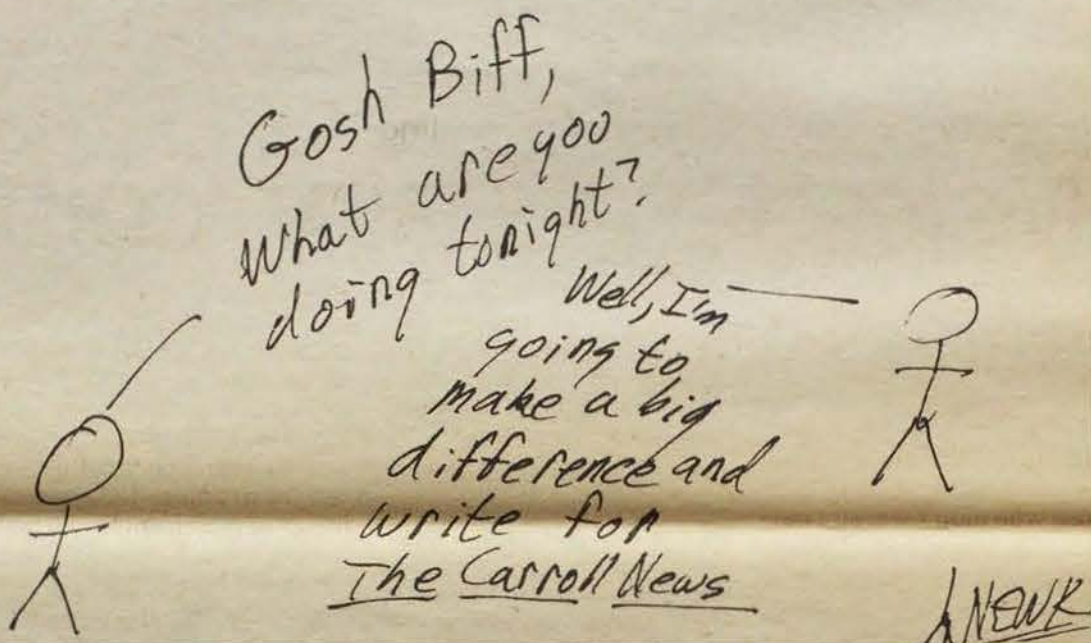 Gosh Biff,
What are you
doing tonight?
Well, I'm
going to
make a big
difference and
write for
The Carroll News
NEWK